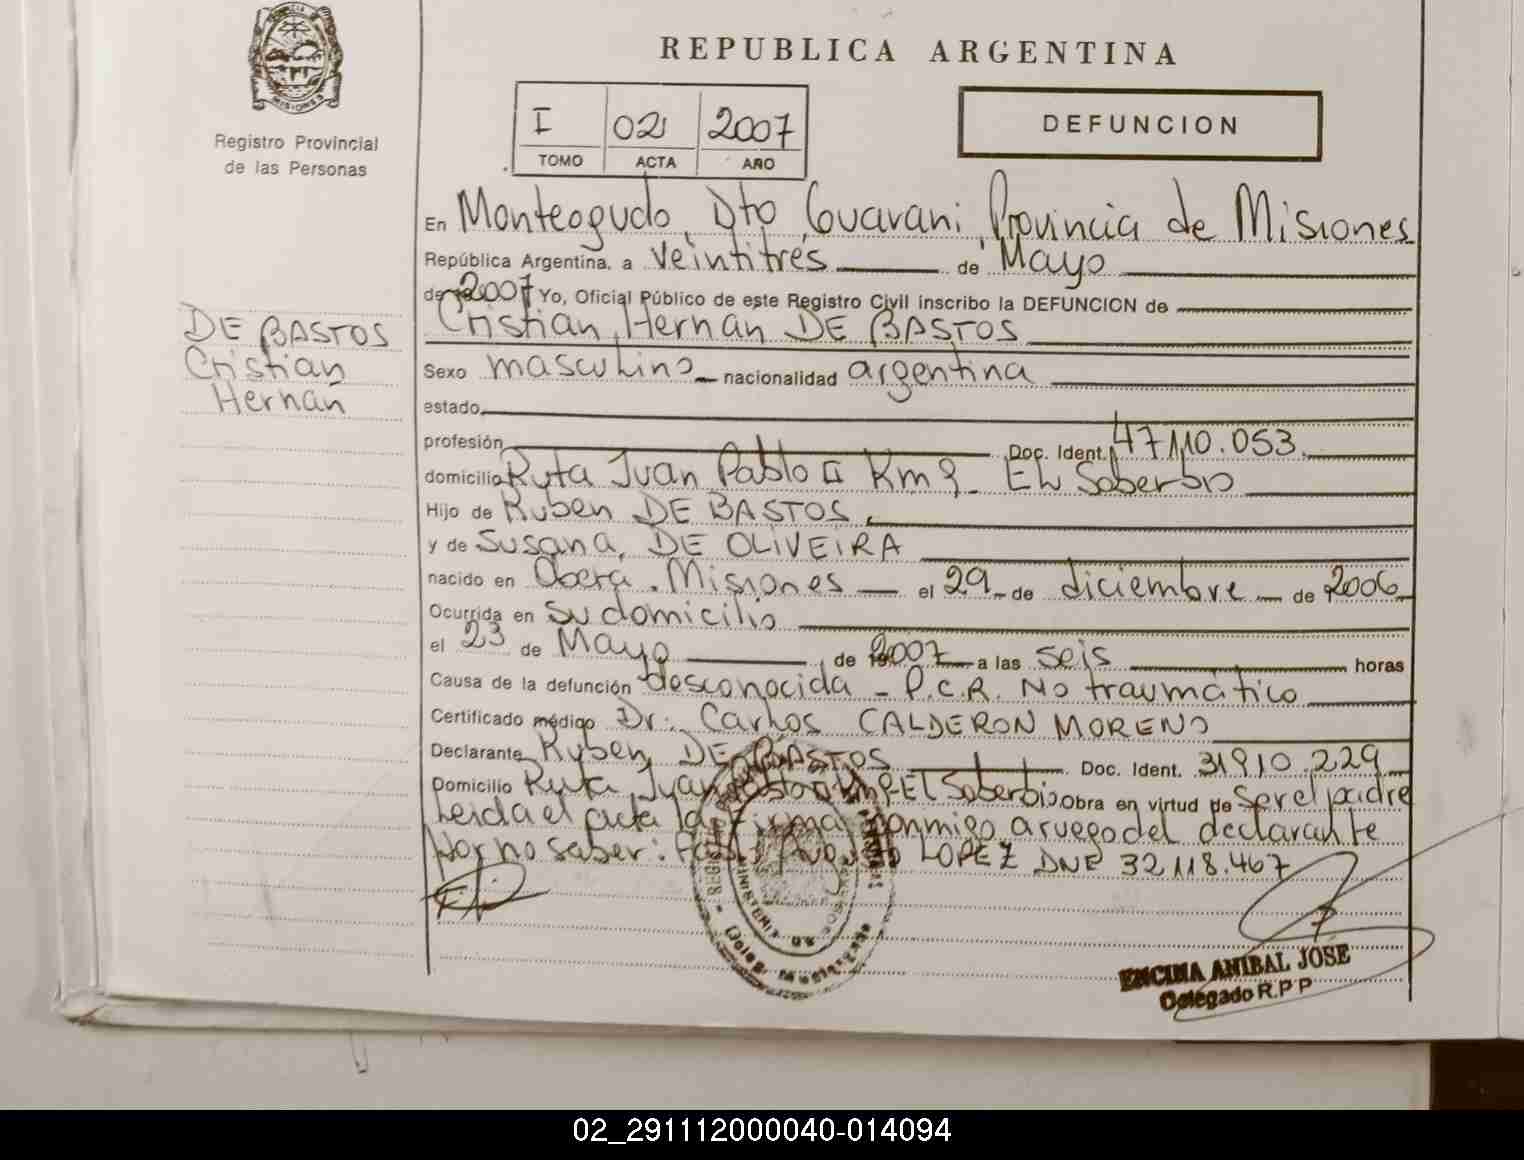 REPUBLICA ARGENTINA
PROVINCIA DE MISIONES
Registro Provincial
de las Personas
I 02 2007
TOMO ACTA AÑO
DEFUNCION
DE BASTOS
Cristian
Hernán
En Monteagudo, Dto Guarani, Provincia de Misiones
República Argentina, a Veintitrés de Mayo
de 2007 Yo, Oficial Público de este Registro Civil inscribo la DEFUNCION de
Cristian Hernán DE BASTOS
Sexo masculino nacionalidad argentina
estado
profesión Doc. Ident. 47.110.053
domicilio Ruta Juan Pablo II Km 9 - EL Soberbio
Hijo de Ruben DE BASTOS
y de Susana DE OLIVEIRA
nacido en Oberá. Misiones el 29 de diciembre de 2006
Ocurrida en su domicilio
el 23 de Mayo de 2007 a las seis horas
Causa de la defunción desconocida - P.C.R. No traumático
Certificado médico Dr: Carlos CALDERON MORENO
Declarante Ruben DE BASTOS Doc. Ident. 31.910.229
Domicilio Ruta Juan Pablo II Km 9 - EL Soberbio Obra en virtud de Ser el padre
Leida el acta la firma conmigo a ruego del declarante
Por no saber: LOPEZ DNE 32.118.467
ENCINA ANIBAL JOSE
Delegado R.P.P
02_291112000040-014094